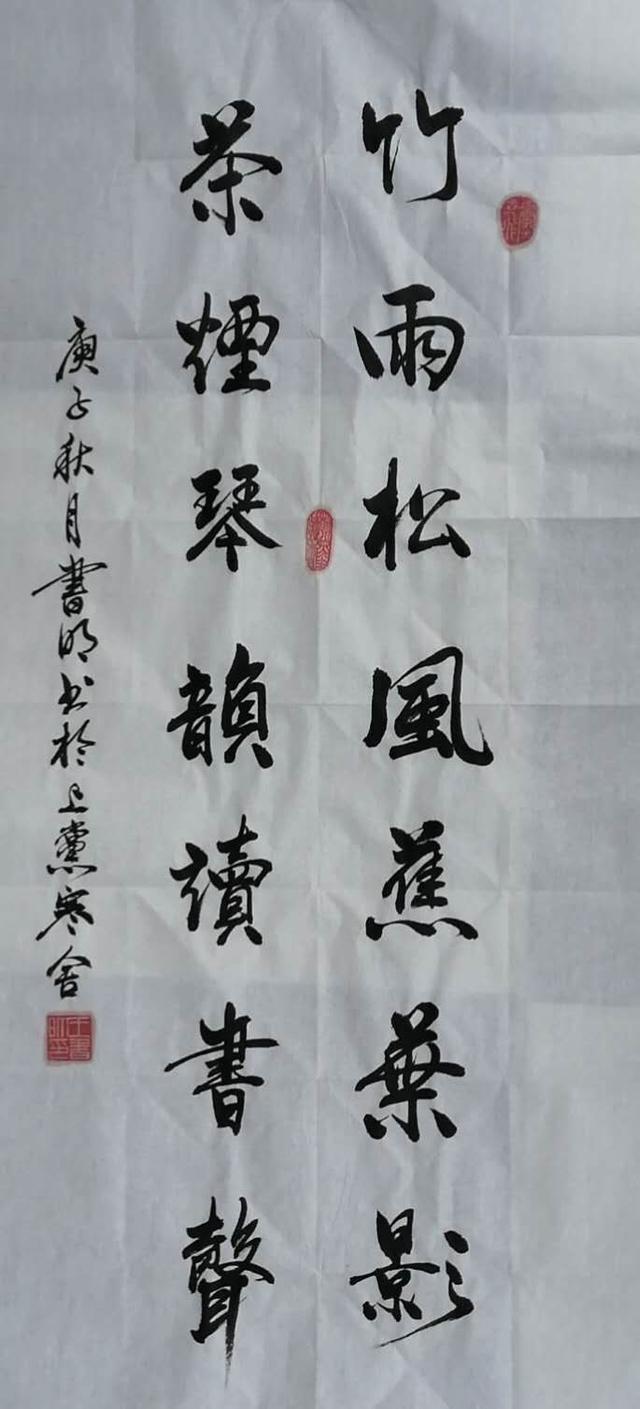 竹雨松風蕉葉影
茶煙琴韻讀書聲
庚子秋月書明书於上黨寒舍